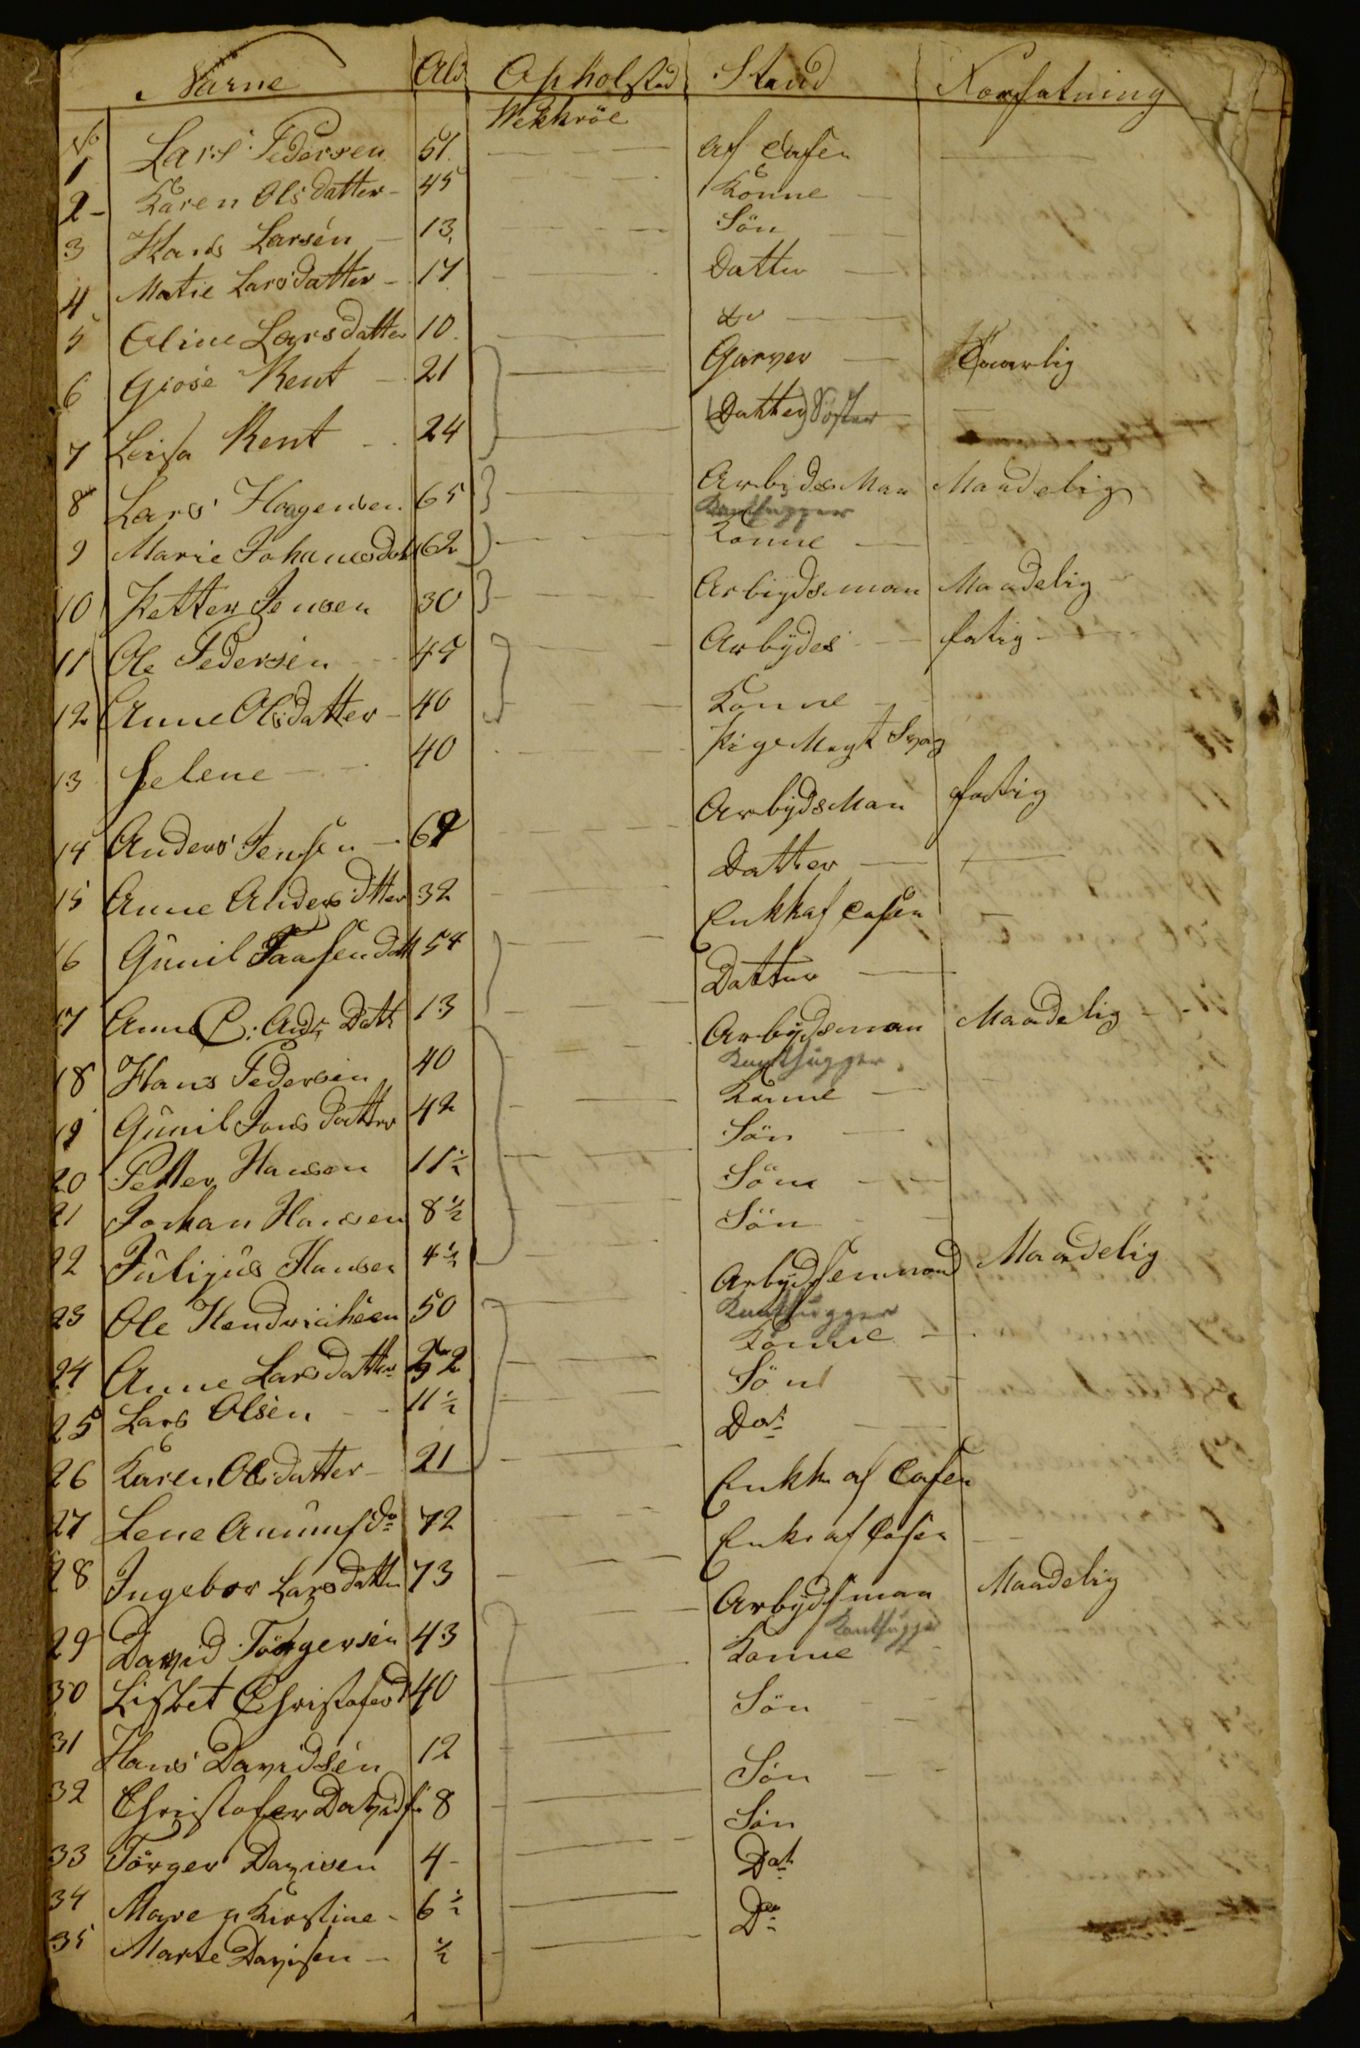 Navne Ald. Opholsted Stand Forfatning
No Wekkröe
1 Lars Pedersen 51. af Casen
2 Karen Olsdatter 45 Konne
3 Hans Larsén 13. Sön
4 Matie Larsdatter 17 Datter
5 Oline Larsdatter 10. do
6 Giose Kent 21 Garver
7 Lerisa Kent 24 (Datter) Söster
8 Lars Haagensen 65 ArbydsMan Maadelig
Kanthugger
9 Marie Johanesdatt 62 Konne
10 Petter Jensen 30 Arbiydsman Maadelig
11 Ole Pedersén 45 Arbydes fatig
12 Anne Olsdatter 40 Konne
13 Helene 40 Pige Meget Svag
14 Anders Jensen 69 ArbydsMan fattig
15 Anne Anders dtter 32 Datter
16 Gunil datt 54 Enkk af Casen
17 Anne C. Ands Datt 13 Datter
18 Hans Pedersen 40 Arbydsman Maadelig
Kanthugger
19 Gunil Jens datter 42 Konne
20 Petter Hansen 11½ Sön
21 Johan Hansen 8½ Söne
22 Juligus Hansen 4½ Sön
23 Ole Hendrichsen 50 Arbydssemand Maadelig
Kanthugger
24 Anne Larsdatter 52 Konne
25 Lars Olsén 11½ Sön
26 Karen Olsdatter 21 Dat
27 Lene Amunds do 72 Enkk af Casen
28 Ingebor Larsdatter 73 Enke af Casen
29 David Törgersén 43 Arbydsman Maadelig
Kanthugger
30 Lisbet Christofersd 40 Konne
31 Hans Davidsén 12 Sön
32 Christofer Davids. 8 Sön
33 Törger Davisen 4 Sön
34 Maren Kirstine 6½ Dat
35 Marte Davisen ½ Do